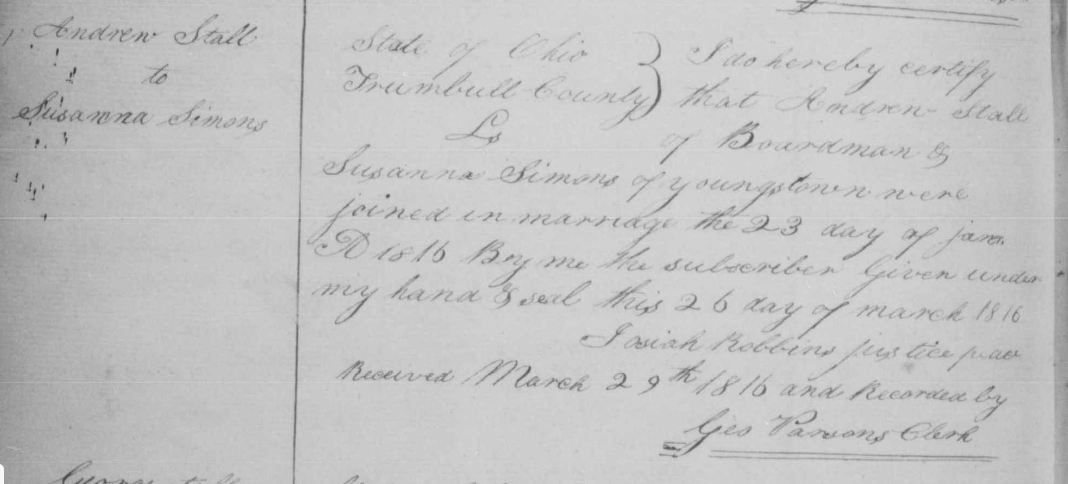 Andrew Stall
to
Susanna Simons
State of Ohio
Trumbull County
Ls
I do hereby certify
that Andrew Stall
of Boardman &
Susanna Simons of youngstown were
joined in marriage the 23 day of jan
AD 1816 By me the subscriber Given under
my hand & seal this 26 day of march 1816
Josiah Robbins justice peac
Received March 29th 1816 and Recorded by
Geo Parsons Clerk